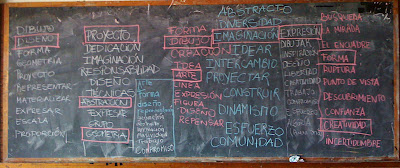 DIBUJO
DISEÑO
FORMA
GEOMETRÍA
PROYECTO
REPRESENTAR
MATERIALIZAR
EXPRESAR
ESCALA
PROPORCIÓN
PROYECTO
DEDICACIÓN
IMAGINACIÓN
RESPONSABILIDAD
DISEÑO
TÉCNICAS
ABSTRACCIÓN
EXPRESAR
GEOMETRÍA
Arte
Forma
diseño
Trabajo
COMPROMISO
FORMA
DIBUJO
CREACIÓN
IDEA
ARTE
LINEA
EXPRESIÓN
FIGURA
DISEÑO
REPENSAR
ABSTRACTO
DIVERSIDAD
IMAGINACIÓN
IDEAR
INTERCAMBIO
PROYECTAR
CONSTRUIR
DINAMISMO
ESFUERZO
COMUNIDAD
EXPRESIÓN
DIBUJAR
BÚSQUEDA
LA MIRADA
EL ENCUADRE
FORMA
RUPTURA
PUNTO DE VISTA
DESCUBRIMIENTO
CONFIANZA
CREATIVIDAD
INCERTIDUMBRE